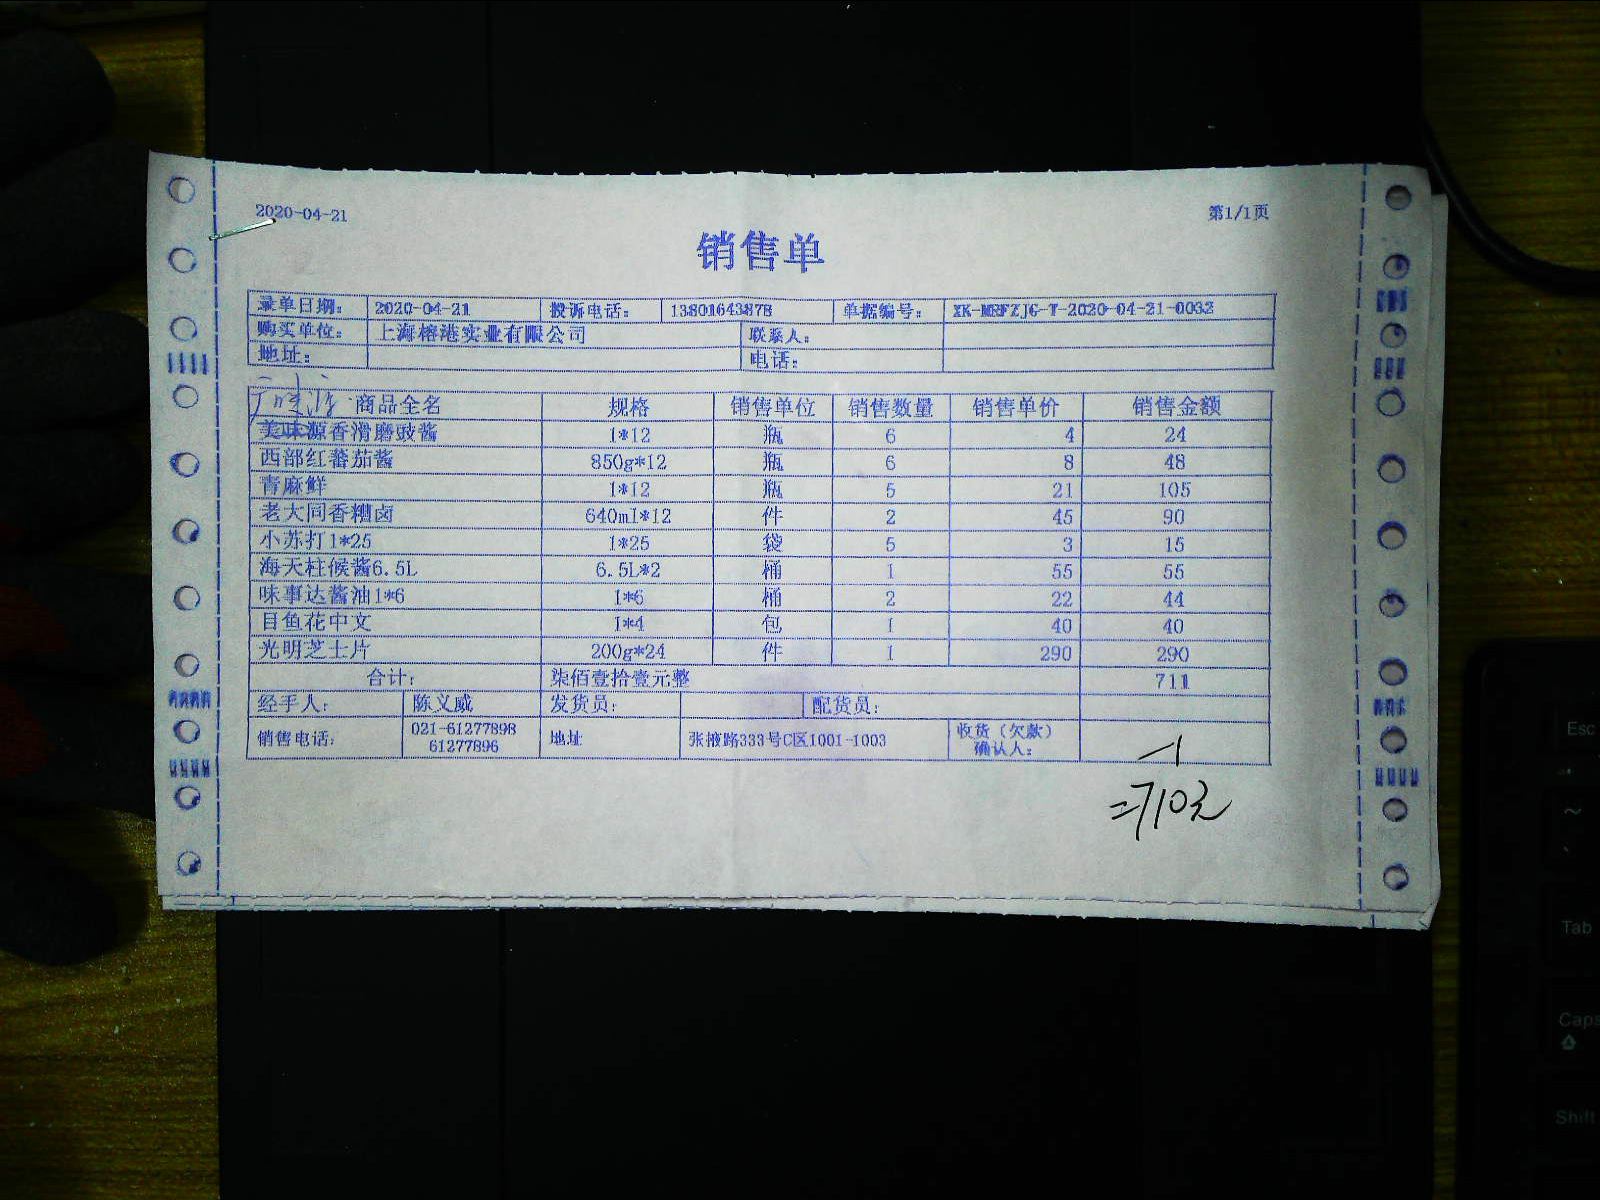 2020-04-21 第1/1页
销售单
录单日期： 2020-04-21 投诉电话： 13801643878 单据编号： XK-MRFZJG-T-2020-04-21-0032
购买单位： 上海榕港实业有限公司 联系人：
地址： 电话：
商品全名 规格 销售单位 销售数量 销售单价 销售金额
美味源香滑磨豉酱 1*12 瓶 6 4 24
西部红蕃茄酱 850g*12 瓶 6 8 48
青麻鲜 1*12 瓶 5 21 105
老大同香糟卤 640ml*12 件 2 45 90
小苏打1*25 1*25 袋 5 3 15
海天柱候酱6.5L 6.5L*2 桶 1 55 55
味事达酱油1*6 1*6 桶 2 22 44
目鱼花中文 1*4 包 1 40 40
光明芝士片 200g*24 件 1 290 290
合计： 柒佰壹拾壹元整 711
经手人： 陈义威 发货员： 配货员：
销售电话： 021-61277898 地址 张掖路333号C区1001-1003 收货（欠款）
61277896 确认人：
-1
=710元
Esc
~
Tab
Caps
Shift